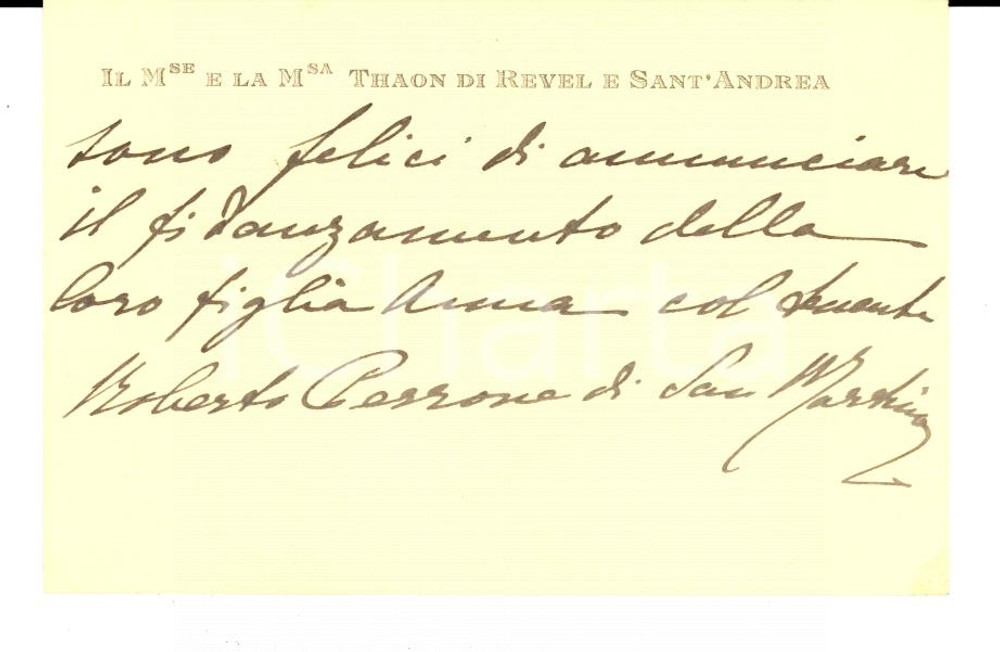 IL MSE E LA MSA THAON DI REVEL E SANT'ANDREA
sono felici di annunciare
il fidanzamento della
loro figlia Anna col tenente
Roberto Perrone di San Martino
iCharta